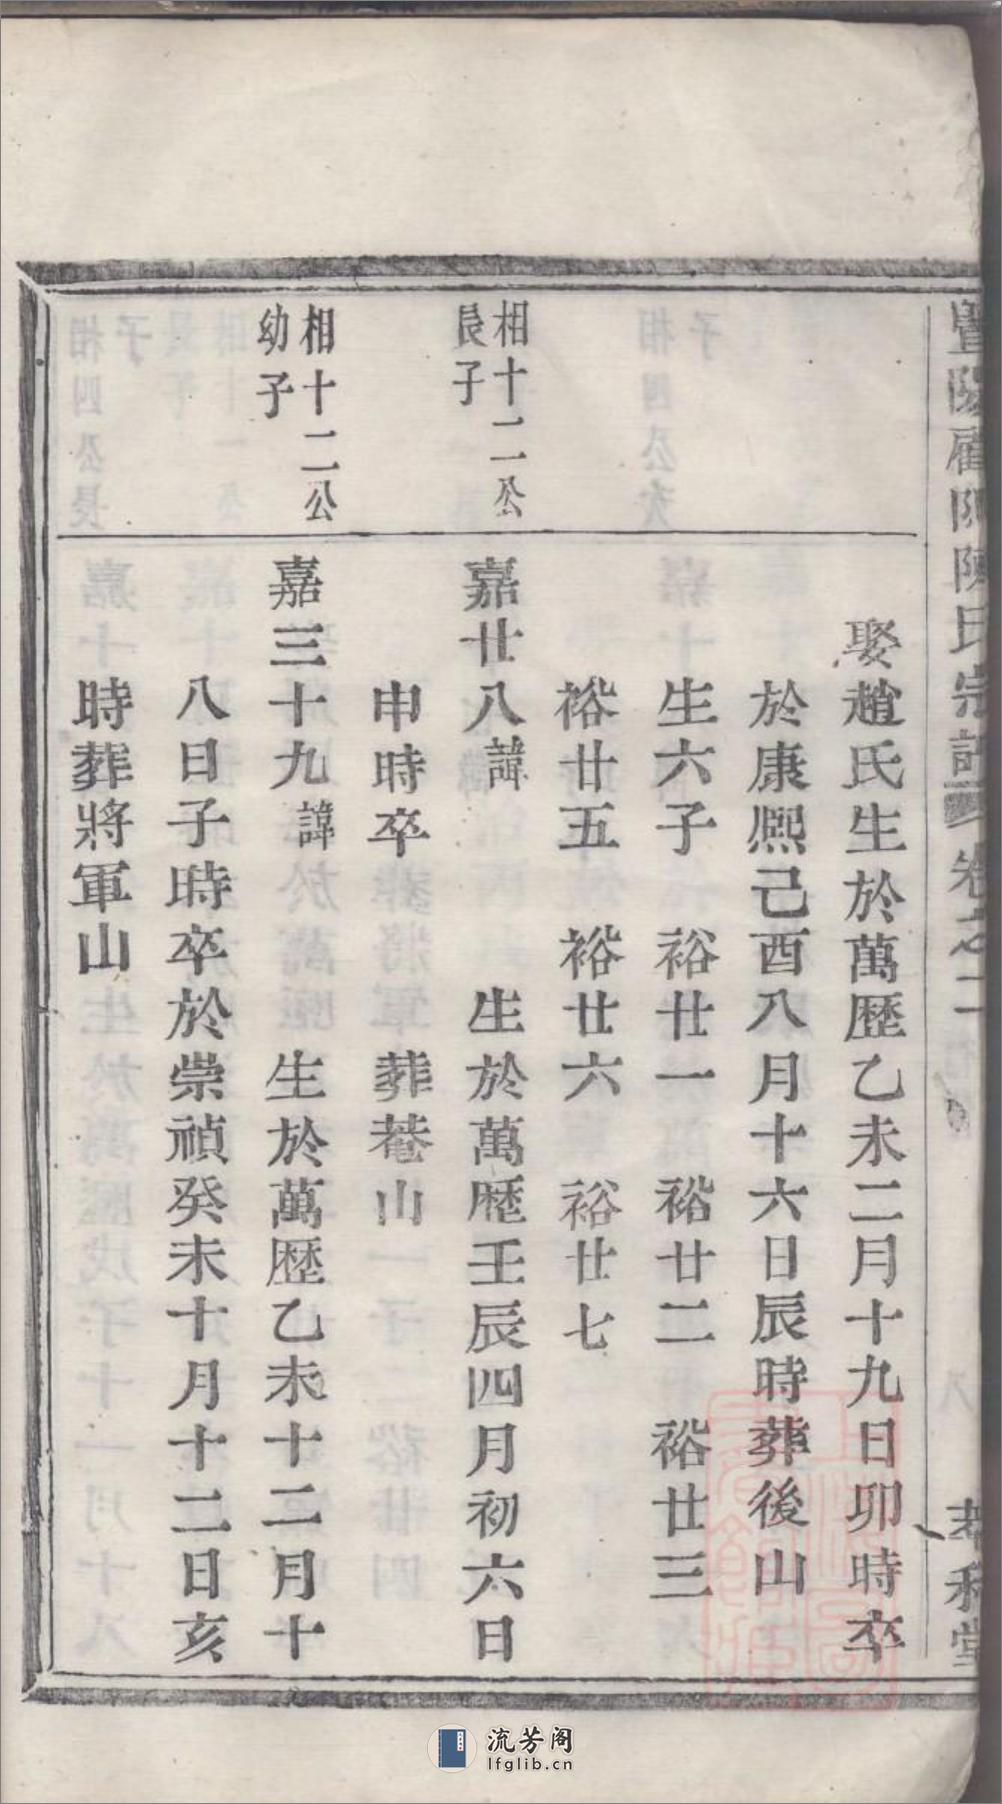 暨陽 陳氏宗譜 卷之二
娶趙氏生於萬歷乙未二月十九日卯時卒
於康熙己酉八月十六日辰時葬後山
生六子 裕廿一 裕廿二 裕廿三
裕廿五 裕廿六 裕廿七
相十二公
長子
嘉廿八諱 生於萬歷壬辰四月初六日
申時卒 葬菴山
相十二公
幼子
嘉三十九諱 生於萬歷乙未十二月十
八日子時卒於崇禎癸未十月十二日亥
時葬將軍山
流芳阁
lfglib.cn